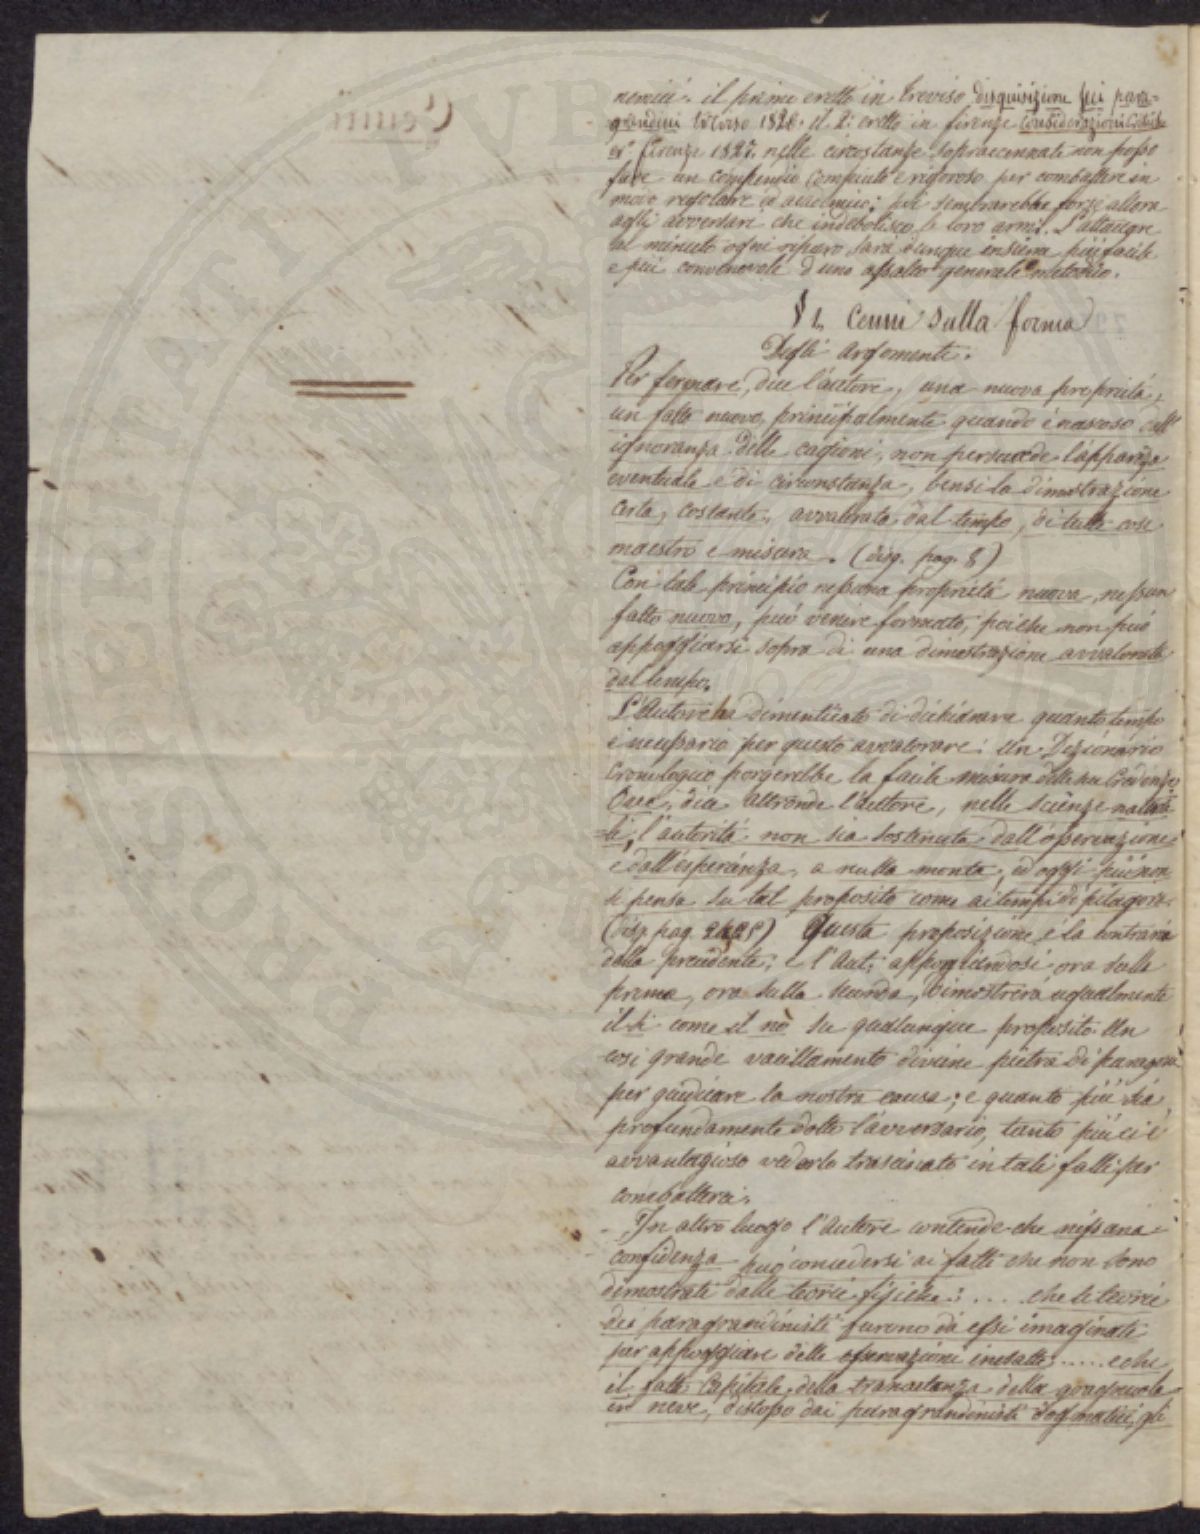 nemici. il primo eretto in Treviso disquisizione sui para=
grandini Treviso 1826. il 2.º eretto in firenze Considerazioni
Firenze 1827. nelle circostanze sopraccennate non posso
fare un compendio compiuto e rigoroso per combattere in
modo regolare ed accademico; poi sembrarebbe forse allora
agli avversari che indebolisco le loro armi. L'attaccare
al minuto ogni riparo sarà dunque insieme più facile
e più convenevole d'uno assalto generale metodico.
§ 1. Cenni sulla forma
Degli Argomenti.
Per formare, dice l'autore, una nuova proprietà,
un fatto nuovo, principalmente quando è nascoso dall'
ignoranza delle cagioni, non persuade l'apparenza
eventuale e di circonstanza, bensi la dimostrazione
certa, costante, avvalorata dal tempo, di tutte cose
maestro e misura. (disq. pag. 8)
Con tale principio nessuna proprietà nuova, nessun
fatto nuovo, può venire formato, poiche non può
appoggiarsi sopra di una dimostrazione avvalorata
dal tempo.
L'Autore ha dimenticato di dichiarare quanto tempo
è necessario per questo avvalorare: un Dizionario
Cronologico porgerebbe la facile misura delle sue Credenze
Ove, dice altronde l'autore, nelle scienze natura=
=li, l'autorità non sia sostenuta dall'osservazione
e dall'esperienza, a nulla monta, ed oggi più non
si pensa su tal proposito come ai tempi di pitagora.
(disq. pag. 24,25) Questa proposizione è la contraria
della precedente; e l'Aut: appoggiandosi ora sulla
prima, ora sulla seconda, dimostrerà ugualmente
il si come il nò su qualunque proposito. Un
cosi grande vacillamento diviene pietra di paragone
per giudicare la nostra causa; e quanto più sia
profundamente dotto l'avversario, tanto più ci è
avvantagioso vederlo trascinato in tali falli per
combatterci.
- In altro luogo l'Autore contende che nissuna
confidenza può concedersi ai fatti che non sono
dimostrati dalle teorie fisiche: .... che le teorie
dei paragrandinisti furono da essi imaginate
per appoggiare delle osservazioni inesatte ..... e che
il fatto Capitale della tramutanza della gragnuola
in neve, disteso dai paragrandinisti dogmatici, gli